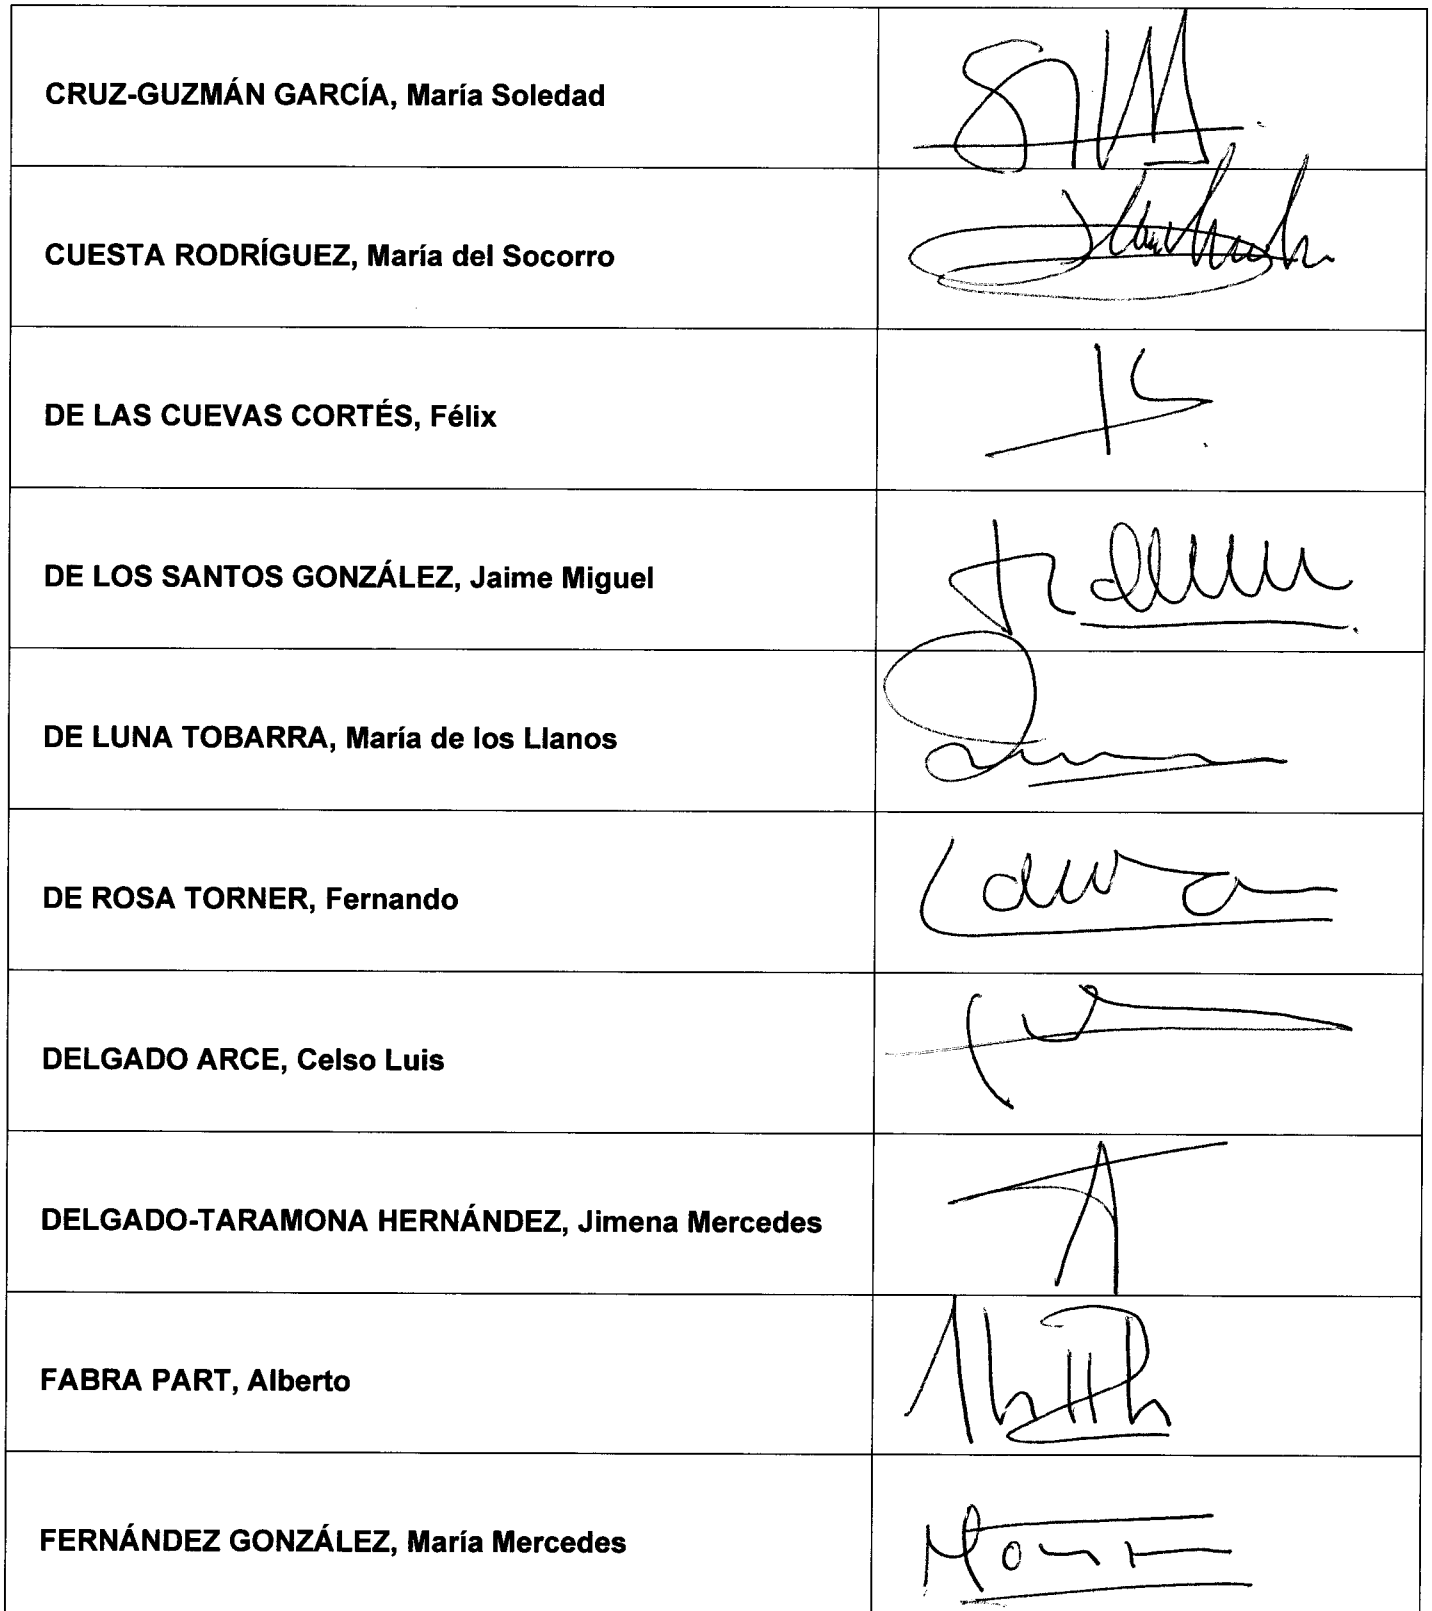 CRUZ-GUZMÁN GARCÍA, María Soledad
CUESTA RODRÍGUEZ, María del Socorro
DE LAS CUEVAS CORTÉS, Félix
DE LOS SANTOS GONZÁLEZ, Jaime Miguel
DE LUNA TOBARRA, María de los Llanos
DE ROSA TORNER, Fernando
DELGADO ARCE, Celso Luis
DELGADO-TARAMONA HERNÁNDEZ, Jimena Mercedes
FABRA PART, Alberto
FERNÁNDEZ GONZÁLEZ, María Mercedes